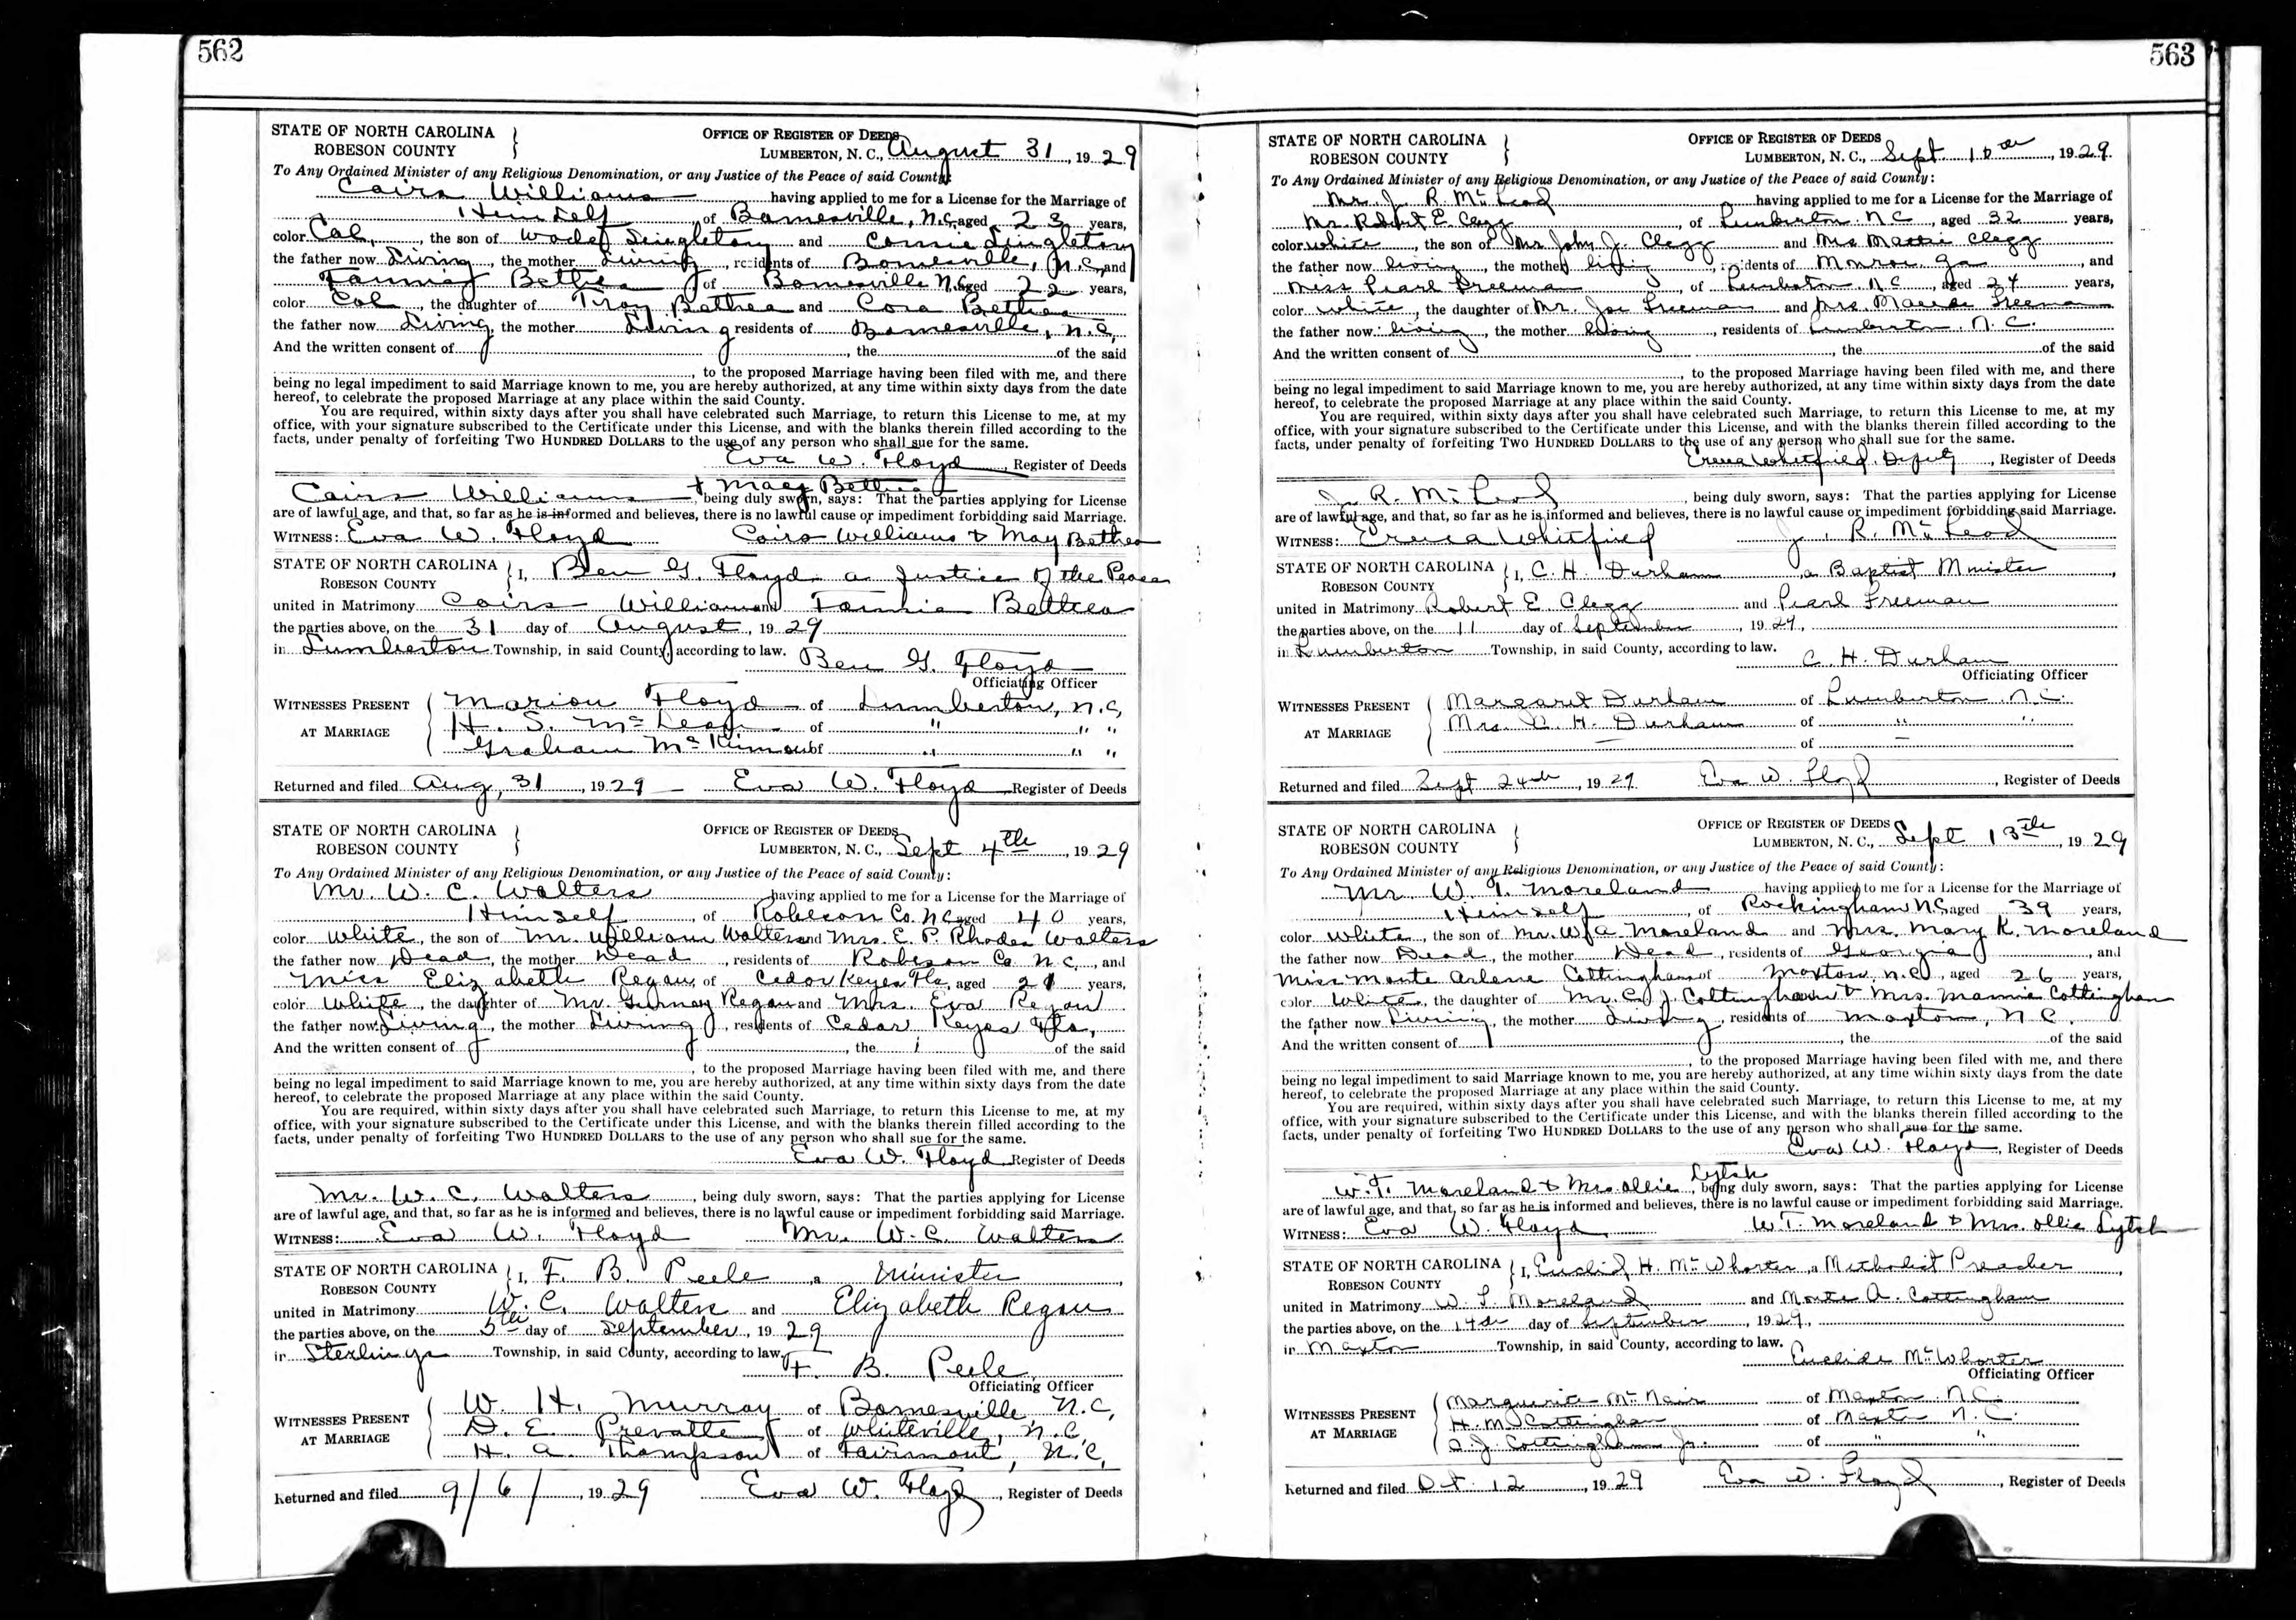 562
STATE OF NORTH CAROLINA
ROBESON COUNTY
OFFICE OF REGISTER OF DEEDS
LUMBERTON, N. C., August 31, 1929
To Any Ordained Minister of any Religious Denomination, or any Justice of the Peace of said County:
Cairs Williams having applied to me for a License for the Marriage of
Himself of Barnesville, N.C. aged 23 years,
color Col, the son of Singletary and Connie Singletary
the father now Living, the mother Living, residents of Barnesville, N.C. and
Fannie Bethea of Barnesville N.C. aged 22 years,
color Col, the daughter of Troy Bethea and Cora Bethea
the father now Living, the mother Living residents of Barnesville, N.C,
And the written consent of , the of the said
, to the proposed Marriage having been filed with me, and there
being no legal impediment to said Marriage known to me, you are hereby authorized, at any time within sixty days from the date
hereof, to celebrate the proposed Marriage at any place within the said County.
You are required, within sixty days after you shall have celebrated such Marriage, to return this License to me, at my
office, with your signature subscribed to the Certificate under this License, and with the blanks therein filled according to the
facts, under penalty of forfeiting TWO HUNDRED DOLLARS to the use of any person who shall sue for the same.
Eva W. Floyd, Register of Deeds
Cairs Williams + Macy Bethea, being duly sworn, says: That the parties applying for License
are of lawful age, and that, so far as he is informed and believes, there is no lawful cause or impediment forbidding said Marriage.
WITNESS: Eva W. Floyd Cairs Williams & May Bethea
STATE OF NORTH CAROLINA
ROBESON COUNTY
I, Ben G. Floyd a Justice of the Peace
united in Matrimony Cairs Williams and Fannie Bethea
the parties above, on the 31 day of August, 1929
in Lumberton Township, in said County, according to law.
Ben G. Floyd
Officiating Officer
WITNESSES PRESENT
AT MARRIAGE
Marion Floyd of Lumberton, N.C,
H. S. McLean of " " "
Graham McKinnon of " " "
Returned and filed Aug, 31, 1929 Eva W. Floyd Register of Deeds
STATE OF NORTH CAROLINA
ROBESON COUNTY
OFFICE OF REGISTER OF DEEDS
LUMBERTON, N. C., Sept 4th, 1929
To Any Ordained Minister of any Religious Denomination, or any Justice of the Peace of said County:
Mr. W. C. Walters having applied to me for a License for the Marriage of
Himself, of Robeson Co. N.C. aged 40 years,
color White, the son of Mr. William Walters and Mrs. E. P. Rhodes Walters
the father now Dead, the mother Dead, residents of Robeson Co. N.C., and
Miss Elizabeth Regan, of Cedar Keyes Fla, aged 21 years,
color White, the daughter of Mr. Gurney Regan and Mrs. Eva Regan
the father now Living, the mother Living, residents of Cedar Keyes Fla,
And the written consent of , the of the said
, to the proposed Marriage having been filed with me, and there
being no legal impediment to said Marriage known to me, you are hereby authorized, at any time within sixty days from the date
hereof, to celebrate the proposed Marriage at any place within the said County.
You are required, within sixty days after you shall have celebrated such Marriage, to return this License to me, at my
office, with your signature subscribed to the Certificate under this License, and with the blanks therein filled according to the
facts, under penalty of forfeiting TWO HUNDRED DOLLARS to the use of any person who shall sue for the same.
Eva W. Floyd Register of Deeds
Mr. W. C. Walters, being duly sworn, says: That the parties applying for License
are of lawful age, and that, so far as he is informed and believes, there is no lawful cause or impediment forbidding said Marriage.
WITNESS: Eva W. Floyd Mr. W. C. Walters
STATE OF NORTH CAROLINA
ROBESON COUNTY
I, F. B. Peele, a Minister,
united in Matrimony W. C. Walters and Elizabeth Regan
the parties above, on the 5th day of September, 1929
in Sterlings Township, in said County, according to law.
F. B. Peele
Officiating Officer
WITNESSES PRESENT
AT MARRIAGE
W. H. Murray of Barnesville, N.C,
D. E. Prevatte of Whiteville, N.C.
H. A. Thompson of Fairmont, N.C,
Returned and filed 9/6/, 1929 Eva W. Floyd, Register of Deeds
563
STATE OF NORTH CAROLINA
ROBESON COUNTY
OFFICE OF REGISTER OF DEEDS
LUMBERTON, N. C., Sept 10th, 1929.
To Any Ordained Minister of any Religious Denomination, or any Justice of the Peace of said County:
Mr. J. R. McLeod having applied to me for a License for the Marriage of
Mr. Robert E. Clegg, of Lumberton N C, aged 32 years,
color white, the son of Mr John J. Clegg and Mrs Mattie Clegg
the father now living, the mother living, residents of Monroe, Ga, and
Miss Pearl Freeman, of Lumberton N C, aged 24 years,
color White, the daughter of Mr. Joe Freeman and Mrs. Maude Freeman
the father now living, the mother living, residents of Lumberton. N. C.
And the written consent of , the of the said
, to the proposed Marriage having been filed with me, and there
being no legal impediment to said Marriage known to me, you are hereby authorized, at any time within sixty days from the date
hereof, to celebrate the proposed Marriage at any place within the said County.
You are required, within sixty days after you shall have celebrated such Marriage, to return this License to me, at my
office, with your signature subscribed to the Certificate under this License, and with the blanks therein filled according to the
facts, under penalty of forfeiting TWO HUNDRED DOLLARS to the use of any person who shall sue for the same.
Whitfield, Deputy, Register of Deeds
J. R. McLeod, being duly sworn, says: That the parties applying for License
are of lawful age, and that, so far as he is informed and believes, there is no lawful cause or impediment forbidding said Marriage.
WITNESS: Whitfield J. R. McLeod
STATE OF NORTH CAROLINA
ROBESON COUNTY
I, C. H. Durham, a Baptist Minister,
united in Matrimony Robert E. Clegg and Pearl Freeman
the parties above, on the 11 day of September, 1929,
in Lumberton Township, in said County, according to law.
C. H. Durham
Officiating Officer
WITNESSES PRESENT
AT MARRIAGE
Margaret Durham of Lumberton N.C.
Mrs. C. H. Durham of " "
of
Returned and filed Sept 24th, 1929. Eva W. Floyd, Register of Deeds
STATE OF NORTH CAROLINA
ROBESON COUNTY
OFFICE OF REGISTER OF DEEDS
LUMBERTON, N. C., Sept 13th, 1929
To Any Ordained Minister of any Religious Denomination, or any Justice of the Peace of said County:
Mr. W. T. Moreland having applied to me for a License for the Marriage of
Himself, of Rockingham N.C, aged 39 years,
color White, the son of Mr. W. A. Moreland and Mrs. Mary K. Moreland
the father now Dead, the mother Dead, residents of Georgia, and
Miss Monte Arlene Cottingham of Maxton, N.C, aged 26 years,
color White, the daughter of Mr. C. J. Cottingham & Mrs. Mamie Cottingham
the father now Living, the mother Living, residents of Maxton, N C.
And the written consent of , the of the said
, to the proposed Marriage having been filed with me, and there
being no legal impediment to said Marriage known to me, you are hereby authorized, at any time within sixty days from the date
hereof, to celebrate the proposed Marriage at any place within the said County.
You are required, within sixty days after you shall have celebrated such Marriage, to return this License to me, at my
office, with your signature subscribed to the Certificate under this License, and with the blanks therein filled according to the
facts, under penalty of forfeiting TWO HUNDRED DOLLARS to the use of any person who shall sue for the same.
Eva W. Floyd, Register of Deeds
W. T. Moreland & Mrs Ollie Lytch, being duly sworn, says: That the parties applying for License
are of lawful age, and that, so far as he is informed and believes, there is no lawful cause or impediment forbidding said Marriage.
WITNESS: Eva W. Floyd W T. Moreland & Mrs. Ollie Lytch
STATE OF NORTH CAROLINA
ROBESON COUNTY
I, Euclid H. McWhorter, a Methodist Preacher,
united in Matrimony W. T. Moreland and Monte A. Cottingham
the parties above, on the 14th day of September, 1929,
in Maxton Township, in said County, according to law.
McWhorter
Officiating Officer
WITNESSES PRESENT
AT MARRIAGE
Marguerite McNair of Maxton N.C.
H. M. Cottingham of Maxton N. C.
Cottingham Jr. of " "
Returned and filed Oct. 12, 1929 Eva W. Floyd, Register of Deeds